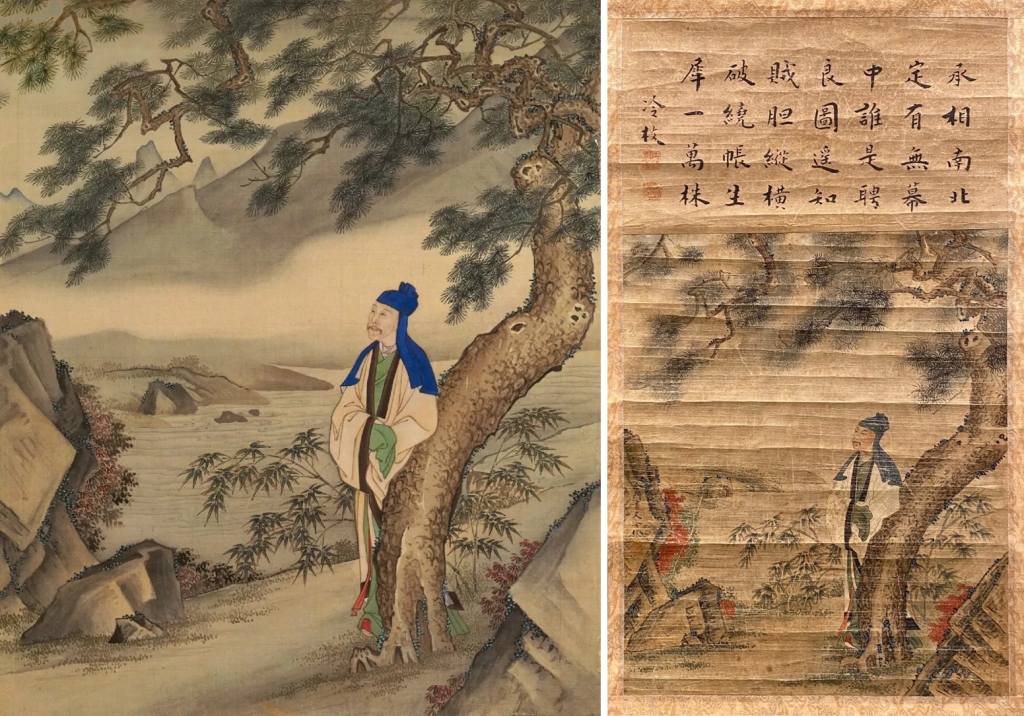 承相南北
定有無幕
中誰是聘
良圖遥知
賊胆縱橫
破繞帳生
犀一萬株
冷枚